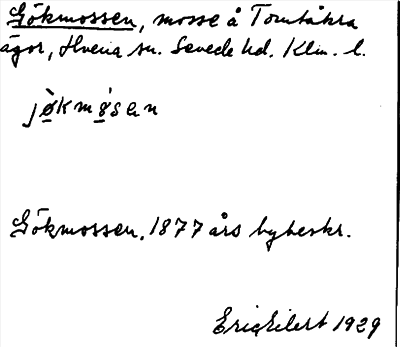 Gökmossen, mosse å Tomtåkra
ägor, Hvena sn. Sevede hd. Klm. l.
jø̀kmòsen
Gökmossen. 1877 års bybeskr.
Eric Eilert 1929